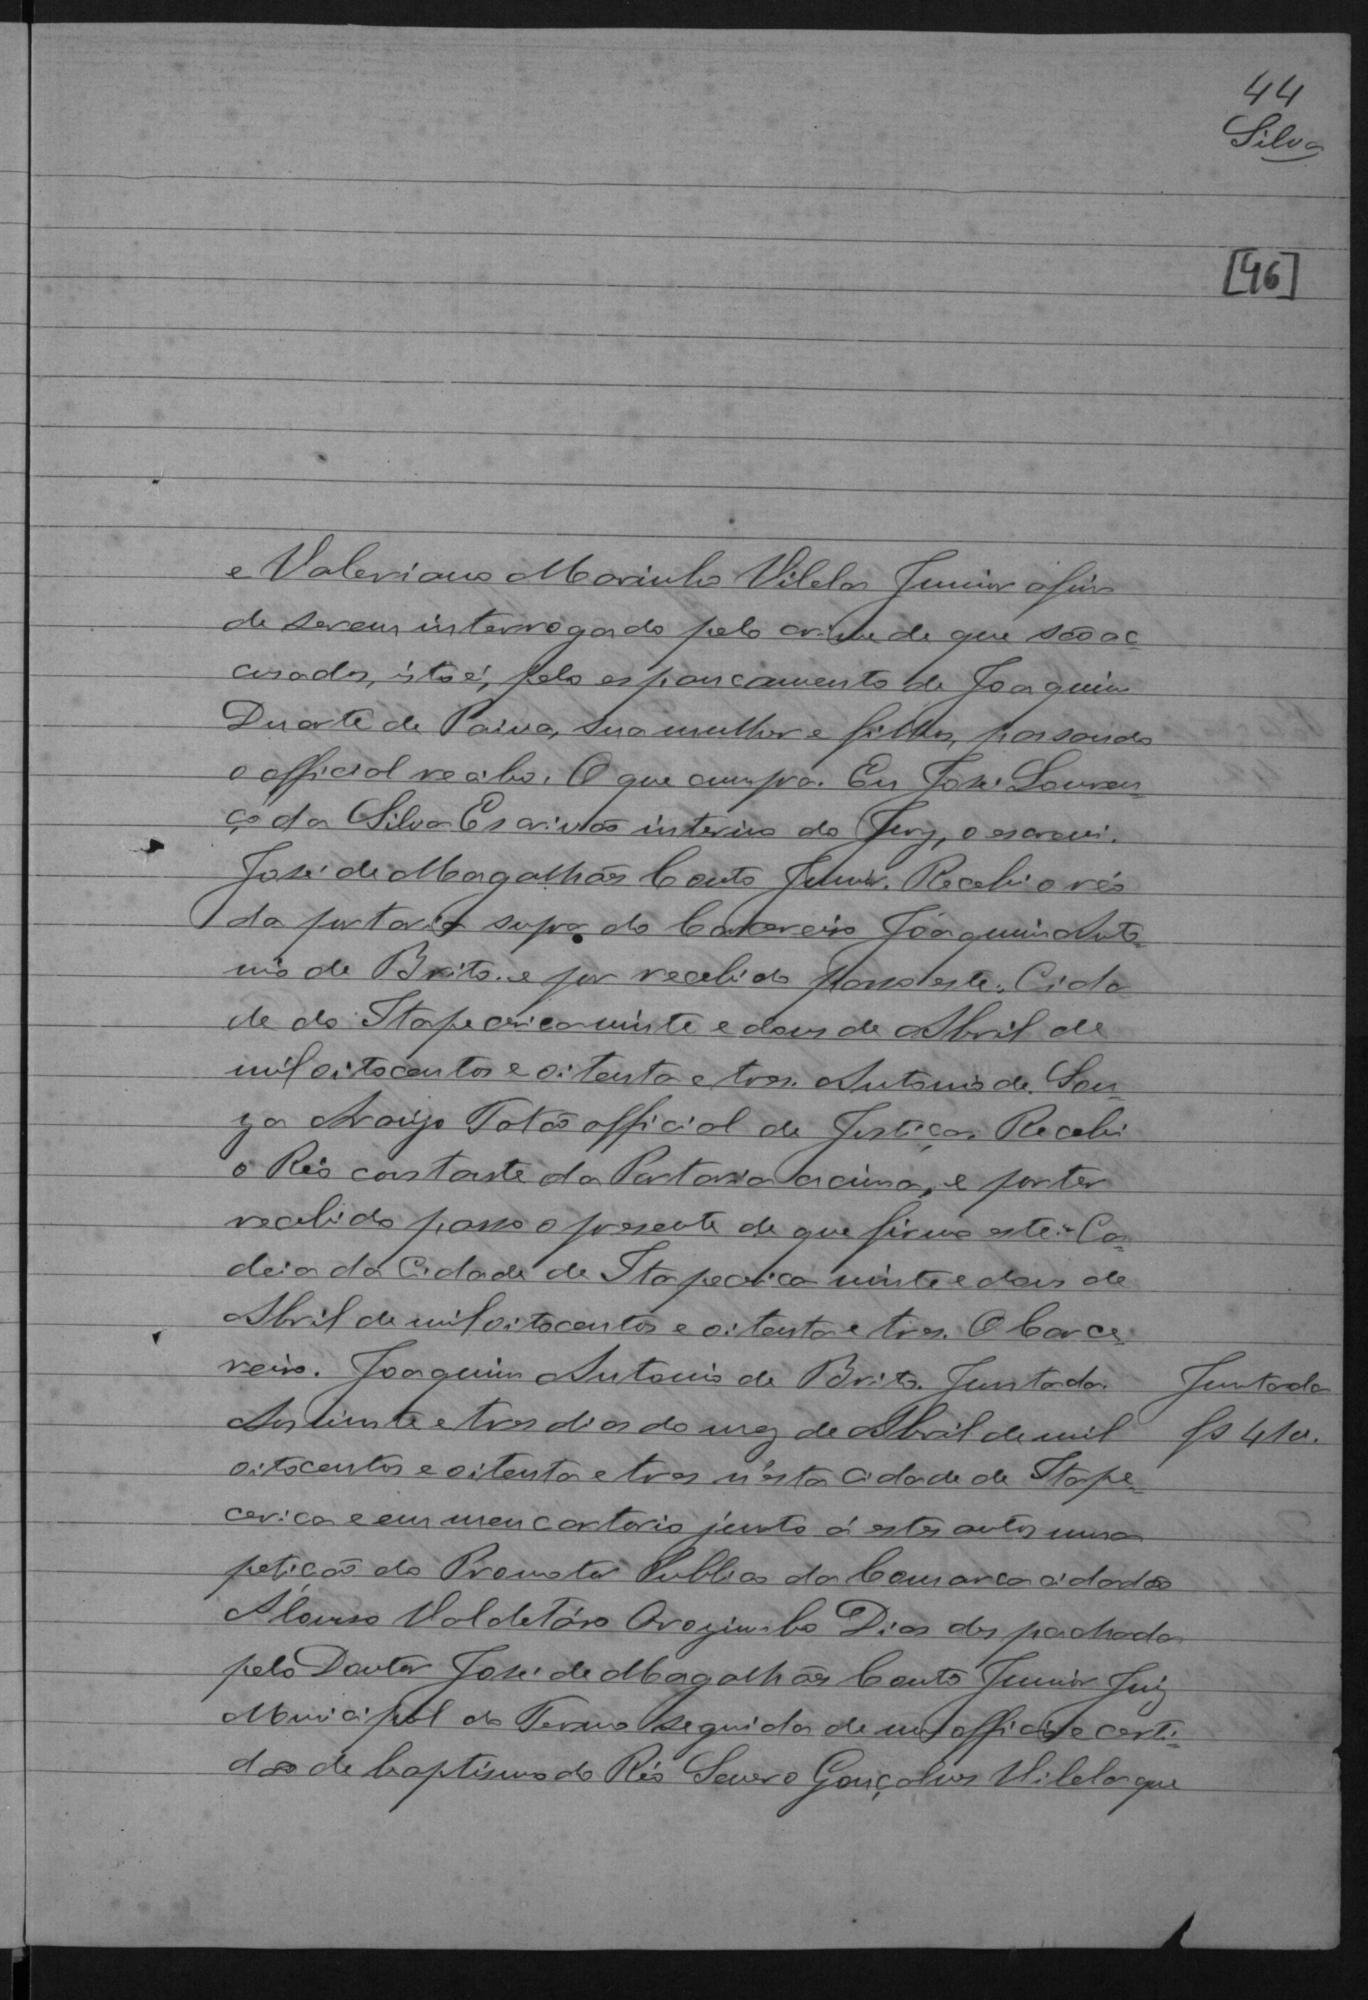 44
Silva
[46]
e Valeriano Marinho Vilela Junior afim
de serem interrogado pelo crime de que são ac-
cusados, isto é, pelo espancamento de Joaquim
Duarte de Paiva, sua mulher e filhos, passando
o official recibo. O que cumpra. Eu José Louren-
ço da Silva Escrivão interino do Jury, o escrevi.
José de Magalhães Couto Junior. Recebi o réo
da portaria supra do Carcereiro Joaquim Anto-
nio de Brito. e por recebido passo este. Cida
de do Itapecerica vinte e dous de Abril de
mil oitocentos e oitenta e tres. Antonio de Sou-
za Araújo Totão official de Justiça. Recebi
o Réo constante da Portaria acima, e por ter
recebido passo o presente de que firmo este. Ca-
deia da Cidade de Itapecerica vinte e dous de
Abril de mil oitocentos e oitenta e tres. O Carce-
reiro. Joaquim Antonio de Brito. Juntada.
Juntada
Aos vinte e tres dias do mez de Abril de mil
fs 41v.
oitocentos e oitenta e tres n'esta cidade de Itape-
cerica e em meu cartorio junto á estes autos uma
petição do Promotor Publico da Comarca cidadão
Alonso Valdetáro Orozimbo Dias despachada
pelo Doutor José de Magalhães Couto Junior Juiz
Municipal do Termo seguida de um officio e certi-
dão de baptismo do Réo Severo Gonçalves Vilela que